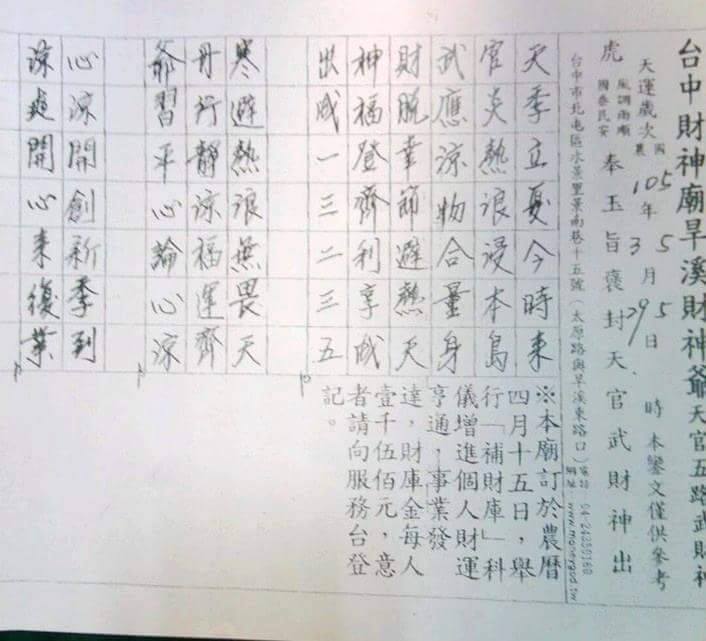 台中財神廟旱溪財神爺天官五路武財神
天運歲次國農105年35月295日 時本鑾文僅供參考
虎 風調雨順 國泰民安 奉玉旨褒封天官武財神出
台中市北屯區水景里景南巷十五號(太原路與旱溪東路口)電話04-24359168
網址www.moneygod.tw
天季立夏今時來
官炎熱浪浸本島
武應涼物合量身
財脫幸節避熱天
神福登齊利享成
出成一三二三五
寒避熱浪無畏天
丹行靜涼福運齊
爺習平心論心涼
心涼開創新季到
涼爽開心來復業
※本廟訂於農曆
四月十五日,舉
行「補財庫」科
儀增進個人財運
亨通,事業發
達,財庫金每人
壹千伍佰元,意
者請向服務台登
記。